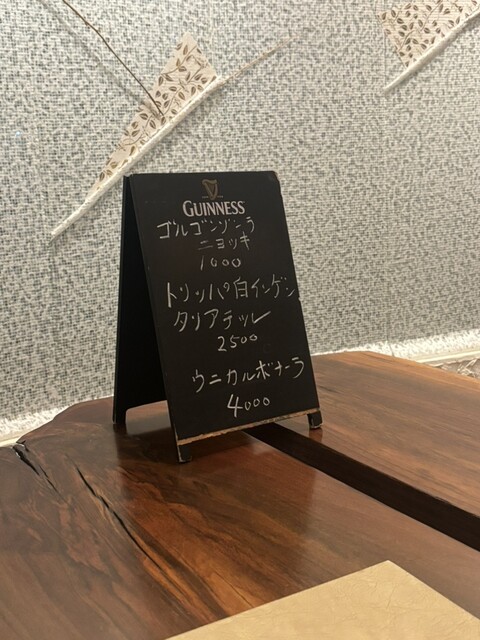 GUINNESS
ゴルゴンゾーラ
ニョッキ
1000
トリッパ白インゲン
タリアテッレ
2500
ウニカルボナーラ
4000